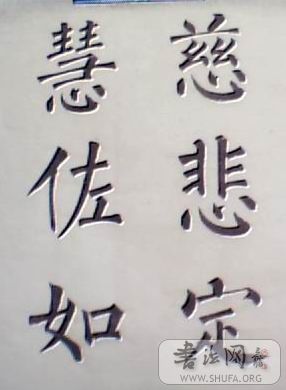 慈悲定
慧佐如
書法网
WWW.SHUFA.ORG